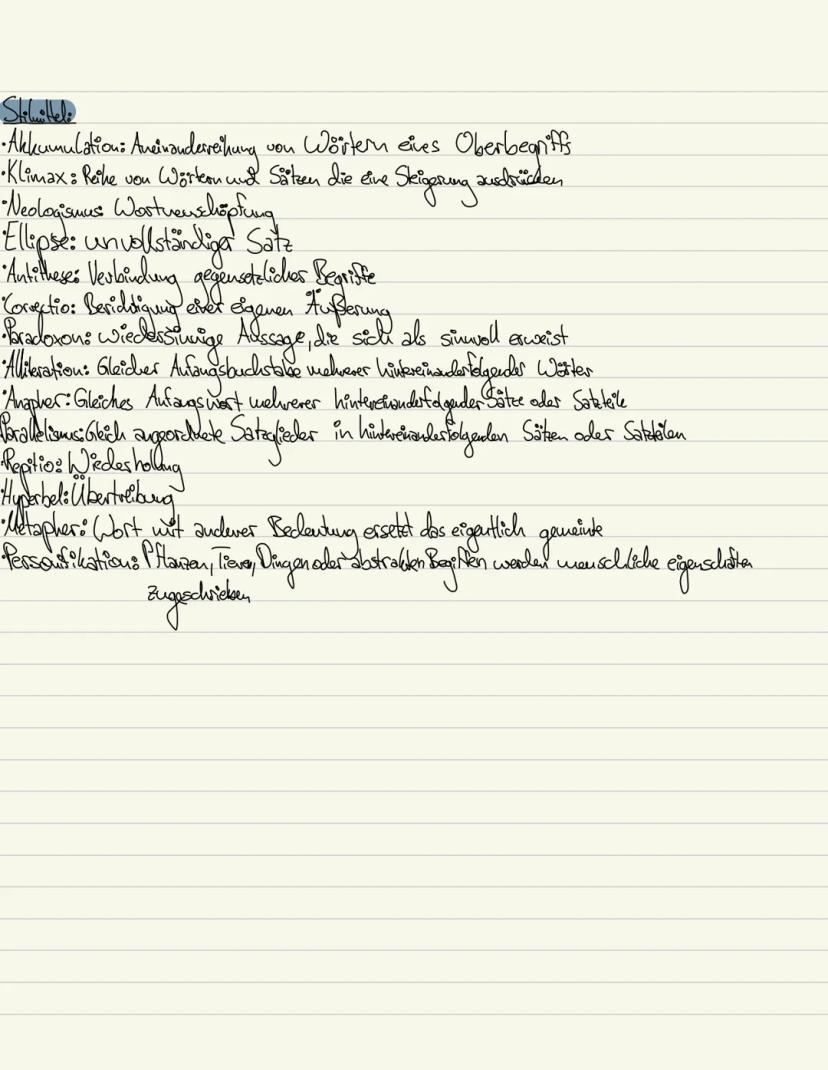 Stilmittel:
·Akkumulation: Aneinanderreihung von Wörtern eines Oberbegriffs
·Klimax: Reihe von Wörtern und Sätzen die eine Steigerung ausdrücken
·Neologismus: Wortneuschöpfung
·Ellipse: unvollständiger Satz
·Antithese: Verbindung gegensetzlicher Begriffe
·Correctio: Berichtigung einer eigenen Äußerung
·Paradoxon: wiedersinnige Aussage, die sich als sinnvoll erweist
·Alliteration: Gleicher Anfangsbuchstabe mehrerer hintereinanderfolgender Wörter
·Anapher: Gleiches Anfangswort mehrerer hintereinanderfolgender Sätze oder Satzteile
Parallelismus: Gleich angeordnete Satzglieder in hintereinanderfolgenden Sätzen oder Satzteilen
·Repitio: Wiederholung
·Hyperbel: Übertreibung
·Metapher: Wort mit anderer Bedeutung ersetzt das eigentlich gemeinte
·Personifikation: Pflanzen, Tieren, Dingen oder abstrakten Begriffen werden menschliche eigenschaften
zugeschrieben